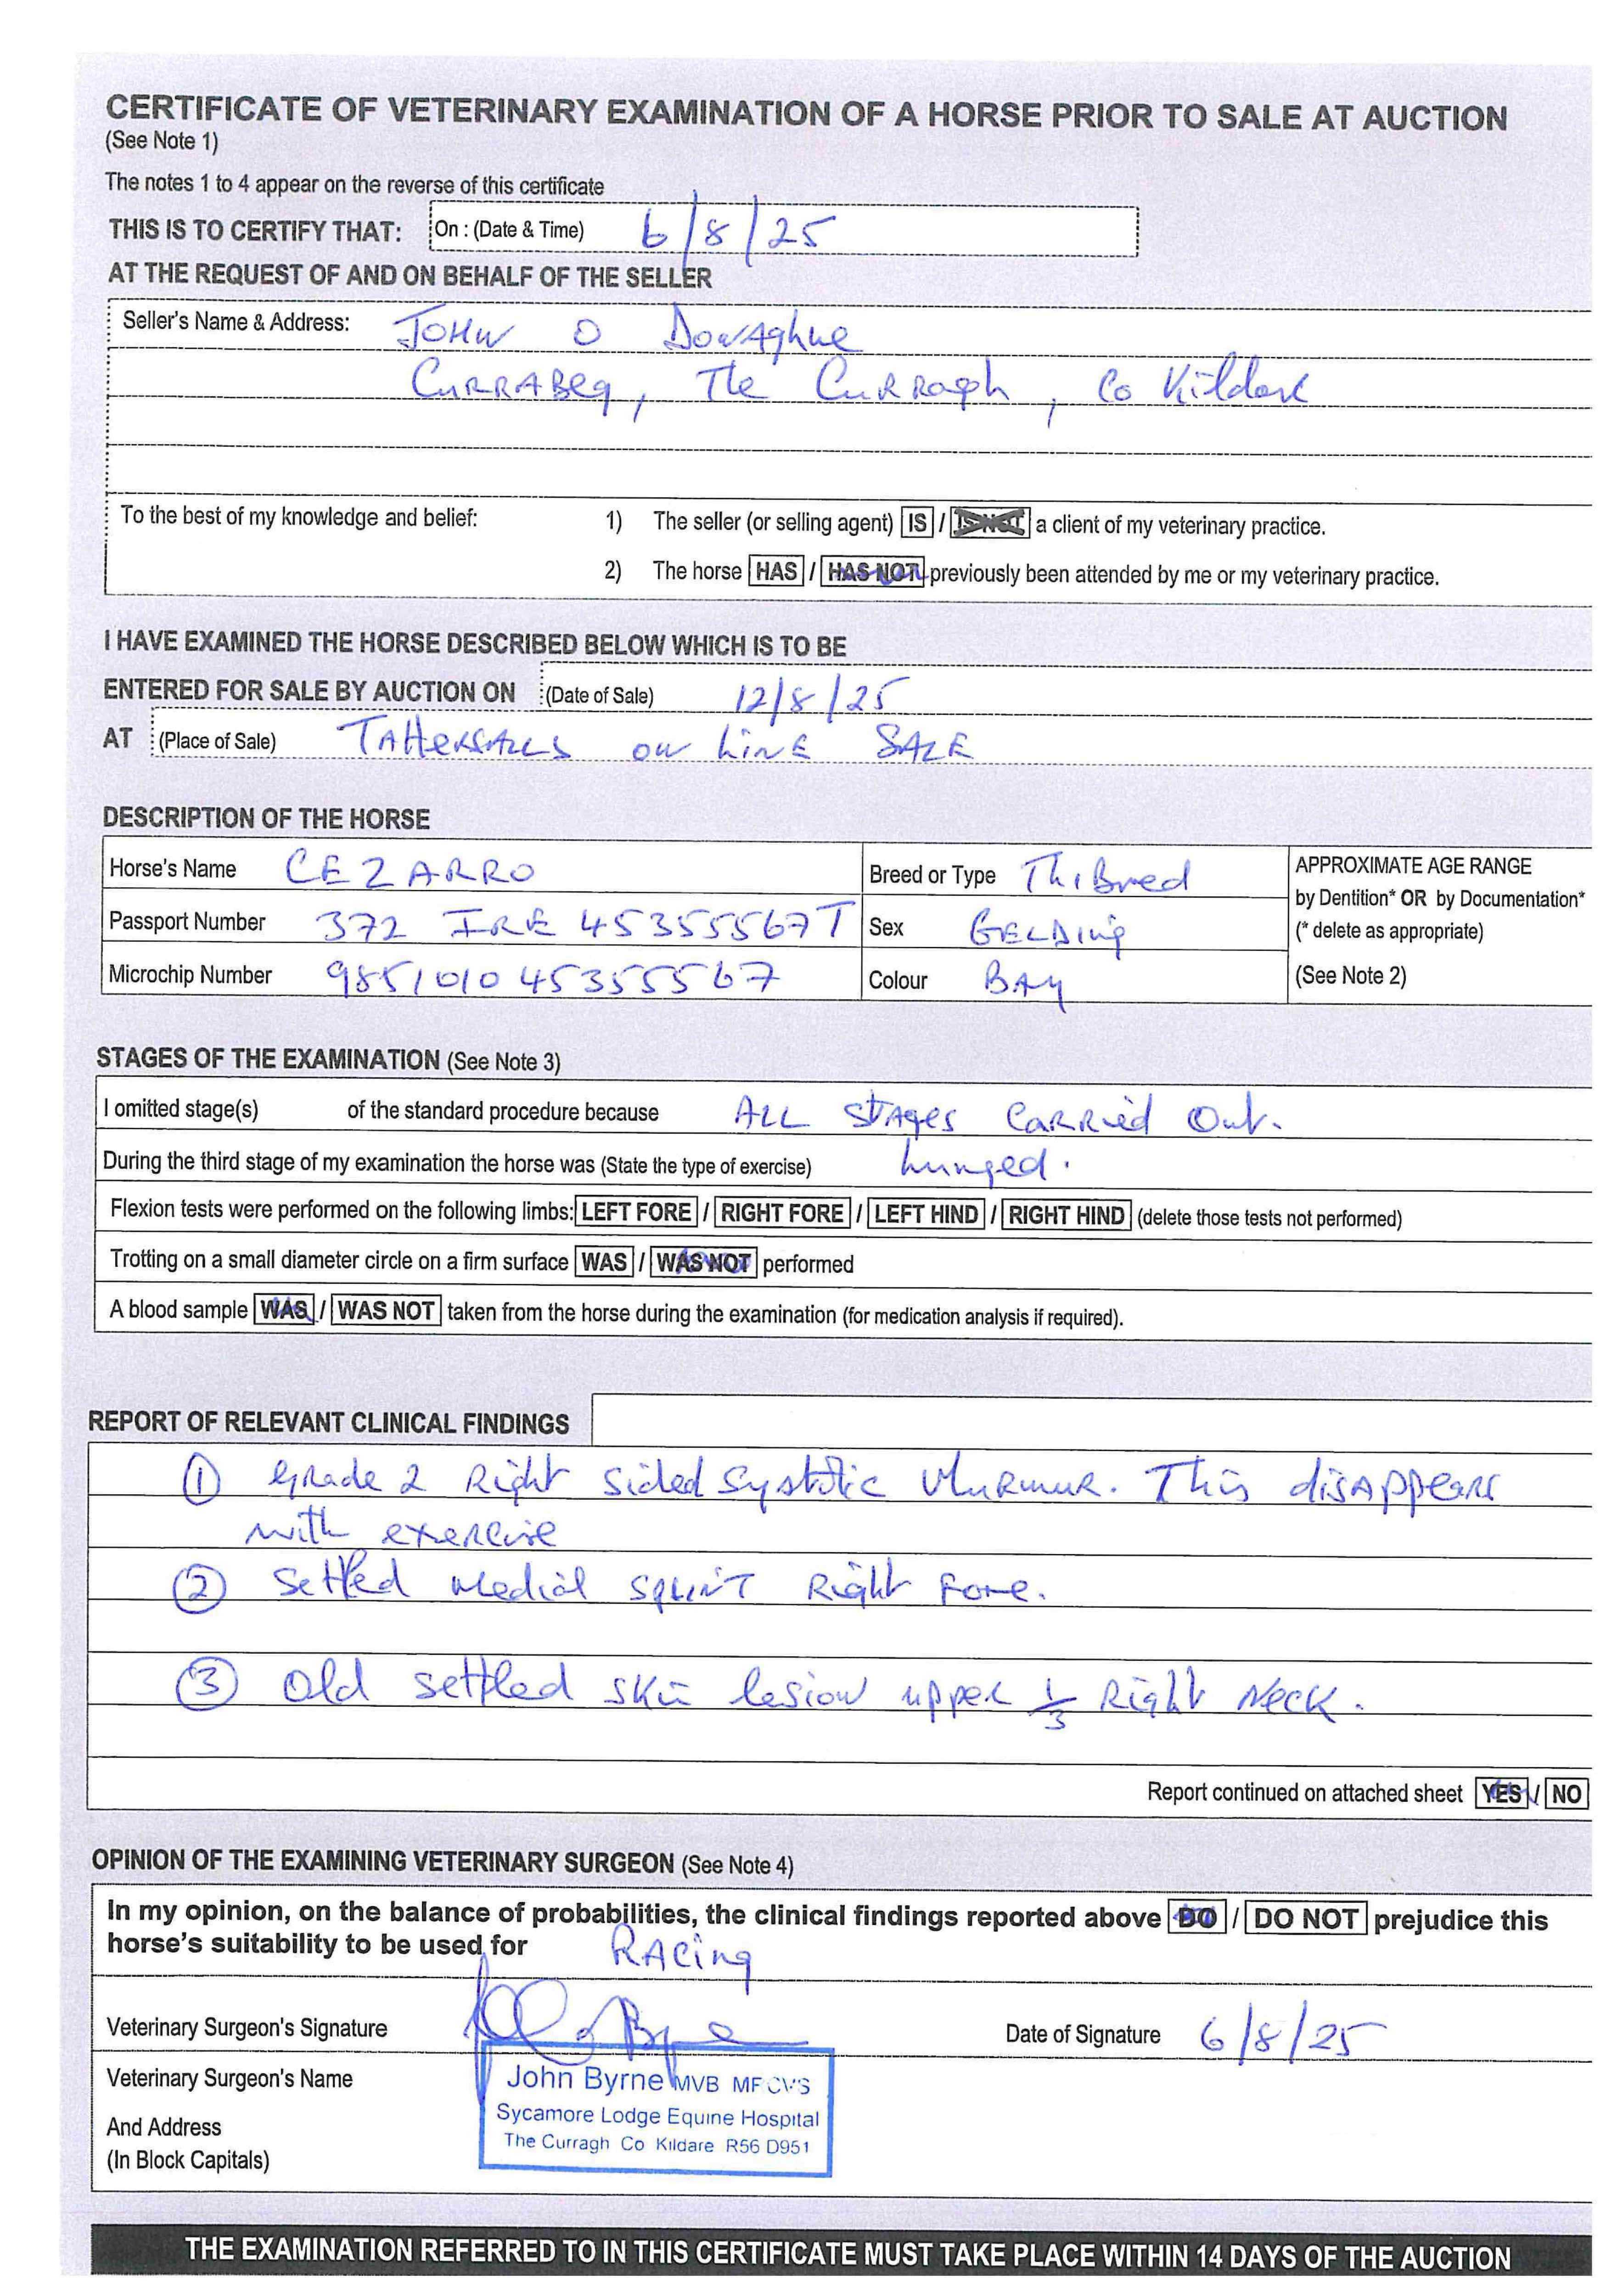 CERTIFICATE OF VETERINARY EXAMINATION OF A HORSE PRIOR TO SALE AT AUCTION
(See Note 1)
The notes 1 to 4 appear on the reverse of this certificate
THIS IS TO CERTIFY THAT: On : (Date & Time) 6/8/25
AT THE REQUEST OF AND ON BEHALF OF THE SELLER
Seller's Name & Address: JOHN O DONAghue
CURRABeg, The CuRRagh, Co Kildare
To the best of my knowledge and belief: 1) The seller (or selling agent) IS / IS NOT a client of my veterinary practice.
2) The horse HAS / HAS NOT previously been attended by me or my veterinary practice.
I HAVE EXAMINED THE HORSE DESCRIBED BELOW WHICH IS TO BE
ENTERED FOR SALE BY AUCTION ON (Date of Sale) 12/8/25
AT (Place of Sale) TAtteRSALLS ON LiNE SALE
DESCRIPTION OF THE HORSE
Horse's Name CEZARRO Breed or Type Th:Bred APPROXIMATE AGE RANGE
by Dentition* OR by Documentation*
Passport Number 372 IRE 45355567T Sex GELDing (* delete as appropriate)
Microchip Number 985101045355567 Colour BAy (See Note 2)
STAGES OF THE EXAMINATION (See Note 3)
I omitted stage(s) of the standard procedure because ALL StAges CaRRied Out.
During the third stage of my examination the horse was (State the type of exercise) Lunged.
Flexion tests were performed on the following limbs: LEFT FORE / RIGHT FORE / LEFT HIND / RIGHT HIND (delete those tests not performed)
Trotting on a small diameter circle on a firm surface WAS / WAS NOT performed
A blood sample WAS / WAS NOT taken from the horse during the examination (for medication analysis if required).
REPORT OF RELEVANT CLINICAL FINDINGS
① Grade 2 Right sided Systolic MuRmuR. This disAppears
with exercise
② Settled Medial SpLiNT Right Fore.
③ Old settled skin lesion upper 1/3 Right Neck.
Report continued on attached sheet YES / NO
OPINION OF THE EXAMINING VETERINARY SURGEON (See Note 4)
In my opinion, on the balance of probabilities, the clinical findings reported above DO / DO NOT prejudice this
horse's suitability to be used for RAcing
Veterinary Surgeon's Signature Date of Signature 6/8/25
Veterinary Surgeon's Name John Byrne MVB MRCVS
And Address Sycamore Lodge Equine Hospital
(In Block Capitals) The Curragh Co Kildare R56 D951
THE EXAMINATION REFERRED TO IN THIS CERTIFICATE MUST TAKE PLACE WITHIN 14 DAYS OF THE AUCTION